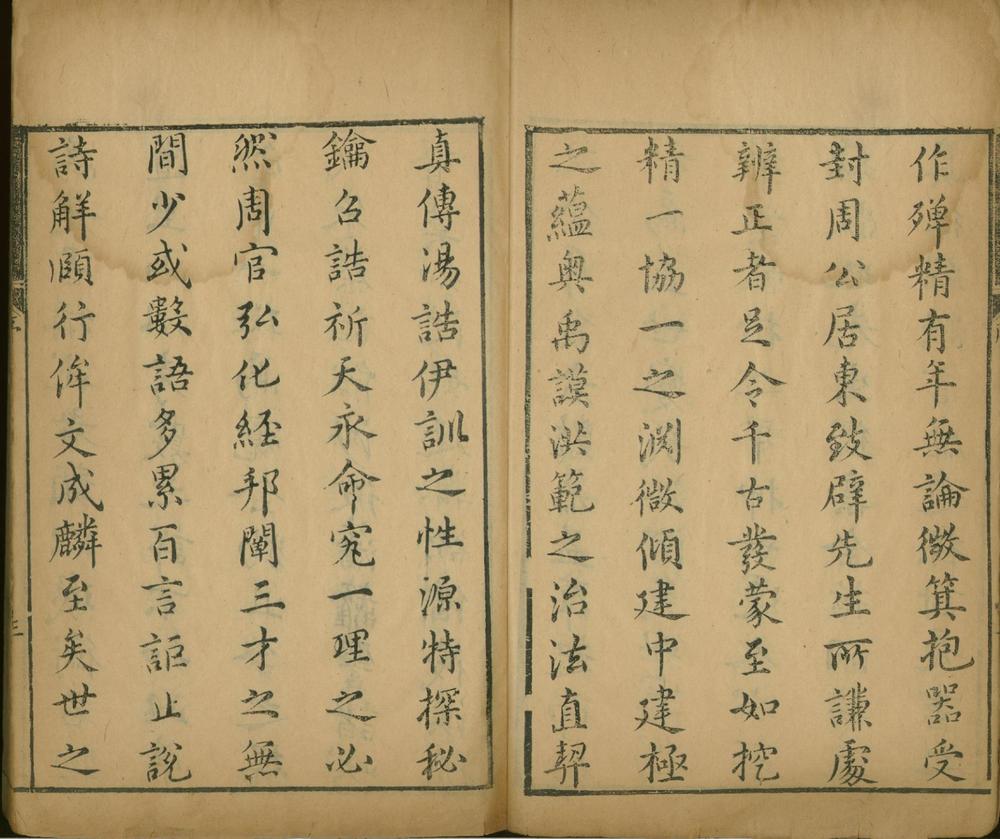 作殫精有年無論微箕抱器受
封周公居東致辟先生所謙處
辨正者足令千古發蒙至如挖
精一協一之淵微傾建中建極
之蘊奧禹謨洪範之治法直契
真傳湯誥伊訓之性源特探秘
鑰召誥祈天永命究一理之必
然周官弘化經邦闡三才之無
間少或數語多累百言詎止說
詩解頤行侔文成麟至矣世之